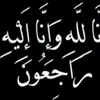 نَّا لِلّهِ وَإِنَّا إِلَيْهِ
رَاجَعُونَ